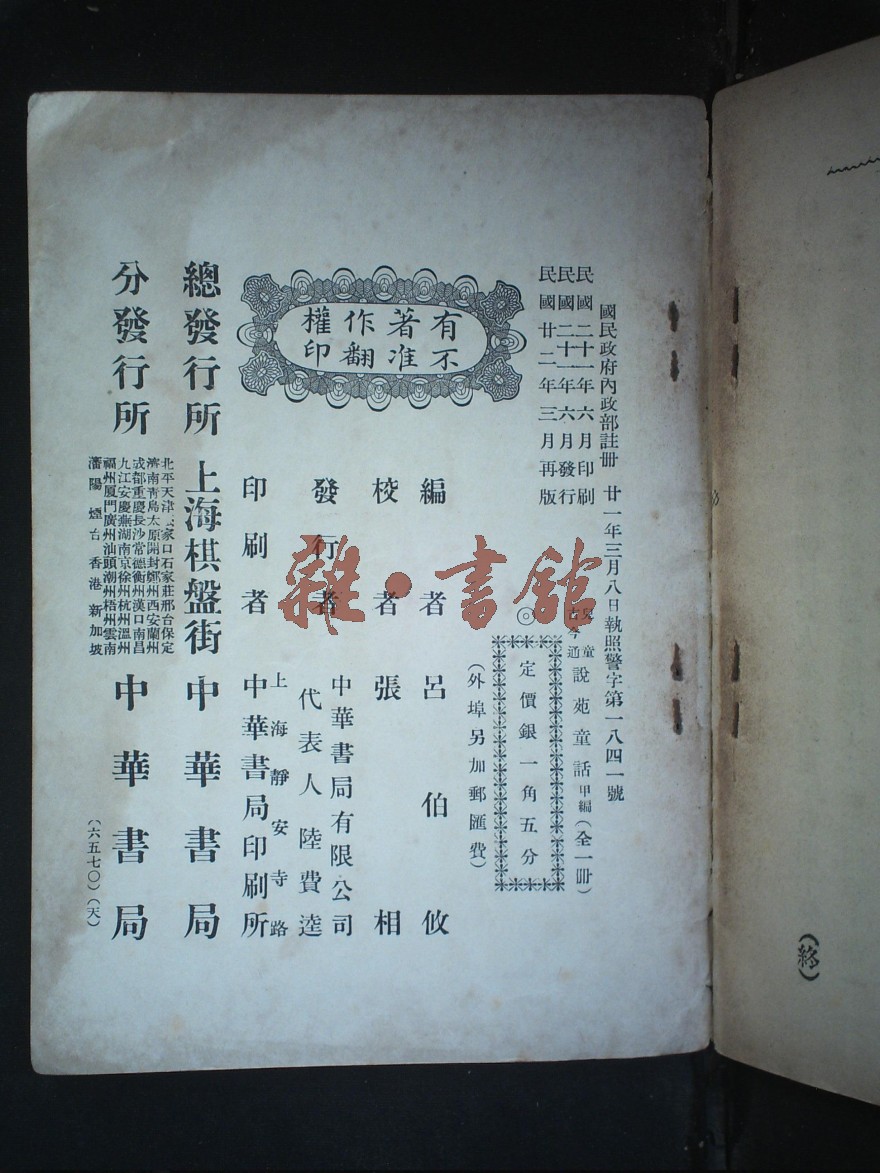 國民政府內政部註冊 廿一年三月八日執照警字第一八四一號
民國二十一年六月印刷
民國二十一年六月發行
民國廿二年三月再版
兒童
古今通
說苑童話甲編(全一冊)
◎
定價銀一角五分
(外埠另加郵匯費)
有著作權
不准翻印
編者呂伯攸
校者張相
發行者
中華書局有限公司
代表人陸費逵
印刷者
上海靜安寺路
中華書局印刷所
總發行所 上海棋盤街 中華書局
分發行所
北平天津家口石家莊邢台保定
濟南青島太原開封鄭州西安蘭州
成都重慶長沙常德衡州漢口南昌
九江安慶蕪湖南京徐州杭州溫州
福州厦門廣州汕頭潮州梧州雲南
瀋陽煙台香港新加坡
中華書局
(六五七〇)(天)
雜·書館
(終)